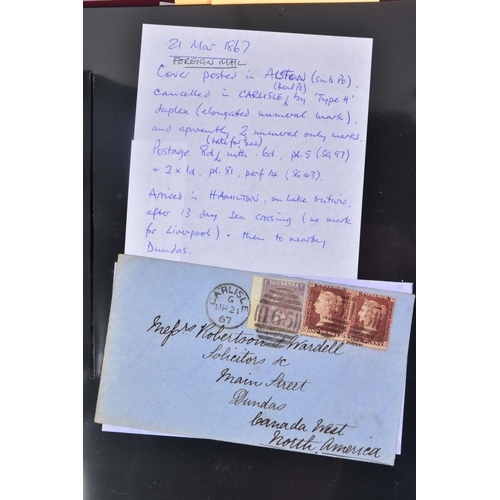 21 Mar 1867
FOREIGN MAIL
Cover posted in ALSTON (sub PO),
(head PO)
cancelled in CARLISLE by 'Type H'
duplex (elongated numeral mark),
and apparently 2 numeral only marks.
(rate for ½oz)
Postage 8d, with 6d. pl.5 (SG 97)
+ 2 x 1d. pl. 81, perf 14 (SG 43).
Arrived in HAMILTON, on Lake Ontario,
after 13 day sea crossing (no mark
for Liverpool) - then to nearby
Dundas.
CARLISLE
G
MR 21
67
POSTAGE
165
ONE PENNY
Messrs Robertson & Wardell
Solicitors &c
Main Street
Dundas
Canada West
North America